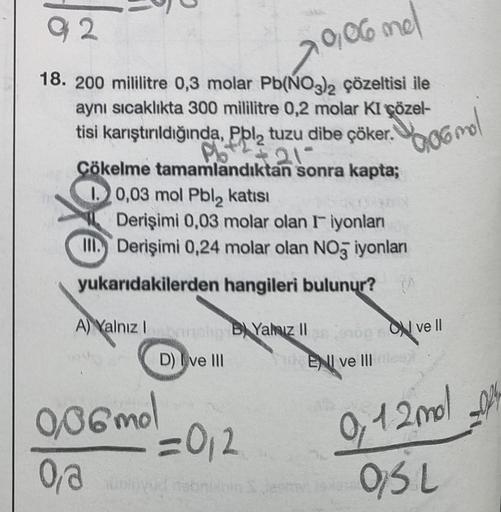 0,2
0,06 mol
18. 200 mililitre 0,3 molar Pb(NO₃)₂ çözeltisi ile
aynı sıcaklıkta 300 mililitre 0,2 molar KI çözel-
tisi karıştırıldığında, PbI₂ tuzu dibe çöker.
0,06 mol
Pb⁺² + 2I⁻
Çökelme tamamlandıktan sonra kapta;
I. 0,03 mol PbI₂ katısı
II. Derişimi 0,03 molar olan I⁻ iyonları
III. Derişimi 0,24 molar olan NO₃⁻ iyonları
yukarıdakilerden hangileri bulunur?
A) Yalnız I B) Yalnız II C) I ve II
D) I ve III E) II ve III
0,06 mol
0,2
=0,2
0,12 mol
0,5 L
=0,24